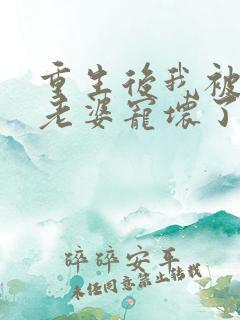 重生後我被
老婆寵壞了
碎碎安平
未经同意禁止转载